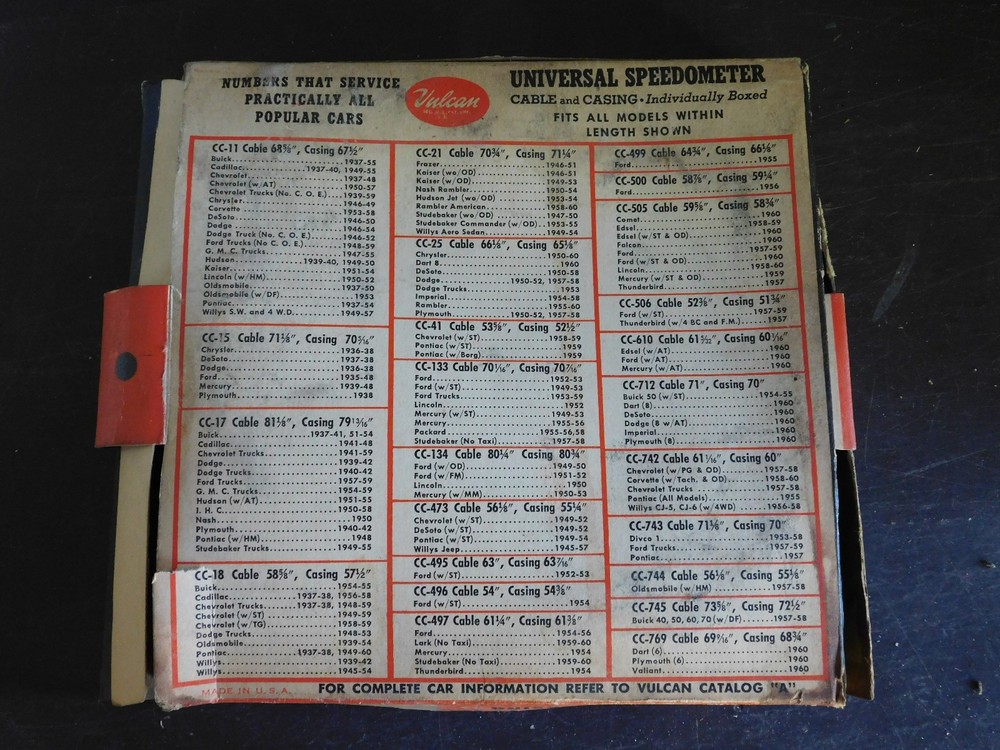 NUMBERS THAT SERVICE
PRACTICALLY ALL
POPULAR CARS
Vulcan
UNIVERSAL SPEEDOMETER
CABLE and CASING • Individually Boxed
FITS ALL MODELS WITHIN
LENGTH SHOWN
CC-11 Cable 68⅝", Casing 67½"
Buick 1937-55
Cadillac 1937-40, 1949-55
Chevrolet 1937-48
Chevrolet (w/AT) 1950-57
Chevrolet Trucks (No. C. O. E.) 1939-59
Chrysler 1946-49
Corvette 1953-58
DeSoto 1946-50
Dodge 1946-54
Dodge Truck (No. C. O. E.) 1946-52
Ford Trucks (No C. O. E.) 1948-59
G. M. C. Trucks 1947-55
Hudson 1939-40, 1949-50
Kaiser 1951-54
Lincoln (w/HM) 1950-52
Oldsmobile 1937-50
Oldsmobile (w/DF) 1953
Pontiac 1937-54
Willys S.W. and 4 W.D. 1949-57
CC-15 Cable 71⅛", Casing 70⁵⁄₁₆"
Chrysler 1936-38
DeSoto 1937-38
Dodge 1936-38
Ford 1935-48
Mercury 1939-48
Plymouth 1938
CC-17 Cable 81⅛", Casing 79¹³⁄₁₆"
Buick 1937-41, 51-54
Cadillac 1941-48
Chevrolet Trucks 1941-59
Dodge 1939-42
Dodge Trucks 1940-42
Ford Trucks 1957-59
G. M. C. Trucks 1954-59
Hudson (w/AT) 1951-55
I. H. C. 1950-58
Nash 1950
Plymouth 1940-42
Pontiac (w/HM) 1948
Studebaker Trucks 1949-55
CC-18 Cable 58⅝", Casing 57½"
Buick 1954-55
Cadillac 1937-38, 1956-58
Chevrolet Trucks 1937-38, 1948-59
Chevrolet (w/ST) 1949-59
Chevrolet (w/TG) 1958-59
Dodge Trucks 1948-53
Oldsmobile 1939-54
Pontiac 1937-38, 1949-60
Willys 1939-42
Willys 1945-54
CC-21 Cable 70¾", Casing 71¼"
Frazer 1946-51
Kaiser (wo/OD) 1946-51
Kaiser (w/OD) 1949-53
Nash Rambler 1950-54
Hudson Jet (wo/OD) 1953-54
Rambler American 1958-60
Studebaker (wo/OD) 1947-50
Studebaker Commander (w/OD) 1953-55
Willys Aero Sedan 1949-54
CC-25 Cable 66⅛", Casing 65⅛"
Chrysler 1950-60
Dart 8 1960
DeSoto 1950-58
Dodge 1950-52, 1957-58
Dodge Trucks 1953
Imperial 1954-58
Rambler 1955-60
Plymouth 1950-52, 1957-58
CC-41 Cable 53⅝", Casing 52½"
Chevrolet (w/ST) 1958-59
Pontiac (w/ST) 1959
Pontiac (w/Borg) 1959
CC-133 Cable 70¹⁄₁₆", Casing 70⁷⁄₁₆"
Ford 1952-53
Ford (w/ST) 1949-53
Ford Trucks 1953-59
Lincoln 1952
Mercury (w/ST) 1949-53
Mercury 1955-56
Packard 1955-56,58
Studebaker (No Taxi) 1957-58
CC-134 Cable 80¼" Casing 80¾"
Ford (w/OD) 1949-50
Ford (w/FM) 1951-52
Lincoln 1950
Mercury (w/MM) 1950-53
CC-473 Cable 56⅛", Casing 55¼"
Chevrolet (w/ST) 1949-52
DeSoto (w/ST) 1949-52
Pontiac (w/ST) 1949-54
Willys Jeep 1945-57
CC-495 Cable 63", Casing 63⁷⁄₁₆"
Ford (w/ST) 1952-53
CC-496 Cable 54", Casing 54⅜"
Ford (w/ST) 1954
CC-497 Cable 61¼", Casing 61⅜"
Ford 1954-56
Lark (No Taxi) 1959-60
Mercury 1954
Studebaker (No Taxi) 1959-60
Thunderbird 1954
CC-499 Cable 64¾", Casing 66⅛"
Ford 1955
CC-500 Cable 58⅞", Casing 59¼"
Ford 1956
CC-505 Cable 59⅝", Casing 58¾"
Comet 1960
Edsel 1958-59
Edsel (w/ST & OD) 1960
Falcon 1960
Ford 1957-59
Ford (w/ST & OD) 1960
Lincoln 1958-60
Mercury (w/ST & OD) 1959
Thunderbird 1957
CC-506 Cable 52⅜", Casing 51¾"
Ford (w/ST) 1957-59
Thunderbird (w/4 BC and F.M.) 1957
CC-610 Cable 61³⁄₃₂", Casing 60¹⁄₁₆"
Edsel (w/AT) 1960
Ford (w/AT) 1960
Mercury (w/AT) 1960
CC-712 Cable 71", Casing 70"
Buick 50 (w/ST) 1954-55
Dart (8) 1960
DeSoto 1960
Dodge (8 w/AT) 1960
Imperial 1960
Plymouth (8) 1960
CC-742 Cable 61¹⁄₁₆", Casing 60"
Chevrolet (w/PG & OD) 1957-58
Corvette (w/Tach. & OD) 1958-60
Chevrolet Trucks 1957-58
Pontiac (All Models) 1955
Willys CJ-5, CJ-6 (w/4WD) 1956-58
CC-743 Cable 71⅛", Casing 70"
Divco 1 1953-58
Ford Trucks 1957-59
Pontiac 1957
CC-744 Cable 56⅛", Casing 55⅛"
Oldsmobile (w/HM) 1957-58
CC-745 Cable 73⅝", Casing 72½"
Buick 40, 50, 60, 70 (w/DF) 1957-58
CC-769 Cable 69⁹⁄₁₆", Casing 68¾"
Dart (6) 1960
Plymouth (6) 1960
Valiant 1960
MADE IN U.S.A.
FOR COMPLETE CAR INFORMATION REFER TO VULCAN CATALOG "A"